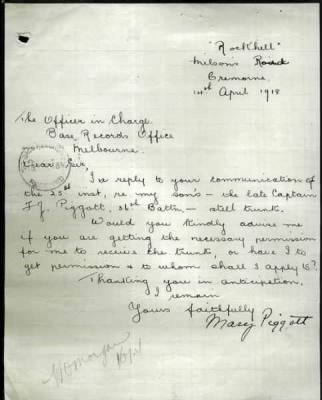 "Rockhill"
Milson Road
Cremorne.
14th April 1918
The Officer in Charge.
Base Records Office
Melbourne.
Dear Sir,
In reply to your communication of
the 25th inst, re my son's - the late Captain
F.J. Piggott, 36th Battn, - steel trunk.
Would you kindly advise me
if you are getting the necessary permission
for me to receive the trunk, or have I to
get permission & to whom shall I apply to?
Thanking you in anticipation.
I remain
Yours faithfully
Mary Piggott